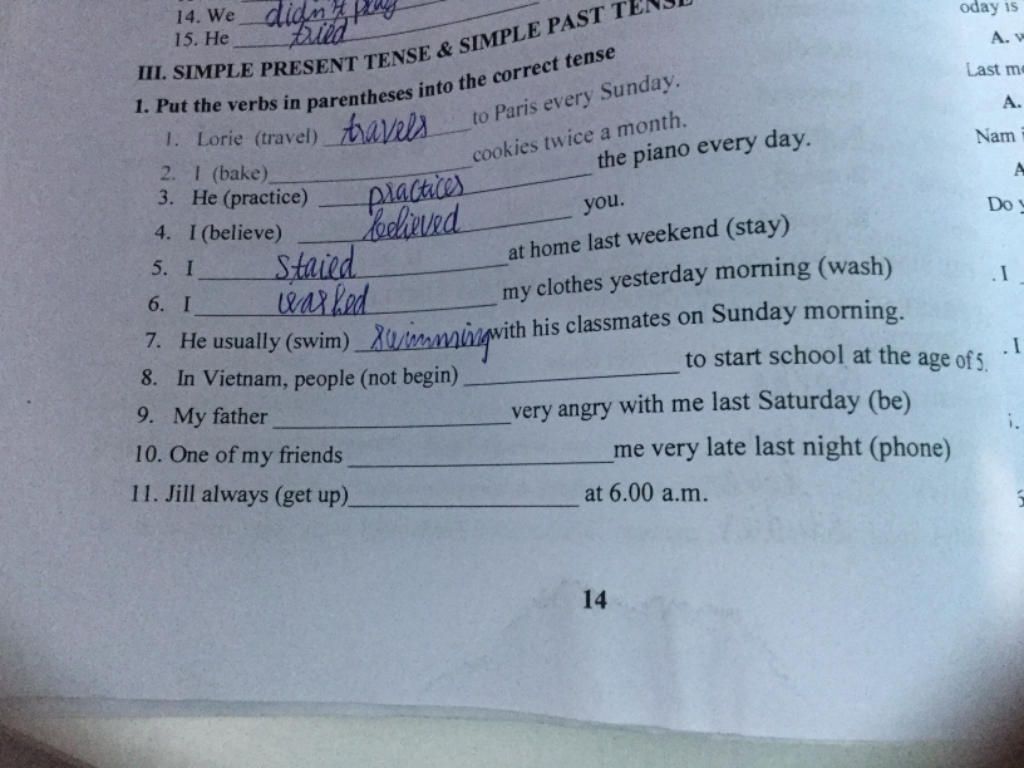 14. We didn't play
15. He tried
III. SIMPLE PRESENT TENSE & SIMPLE PAST TENSE
1. Put the verbs in parentheses into the correct tense
1. Lorie (travel) travels to Paris every Sunday.
2. I (bake) cookies twice a month.
3. He (practice) practices the piano every day.
4. I (believe) believed you.
5. I staied at home last weekend (stay)
6. I washed my clothes yesterday morning (wash)
7. He usually (swim) swimming with his classmates on Sunday morning.
8. In Vietnam, people (not begin) to start school at the age of 5.
9. My father very angry with me last Saturday (be)
10. One of my friends me very late last night (phone)
11. Jill always (get up) at 6.00 a.m.
14
oday is
A.
Last me
A.
Nam
A
Do y
. I
. I